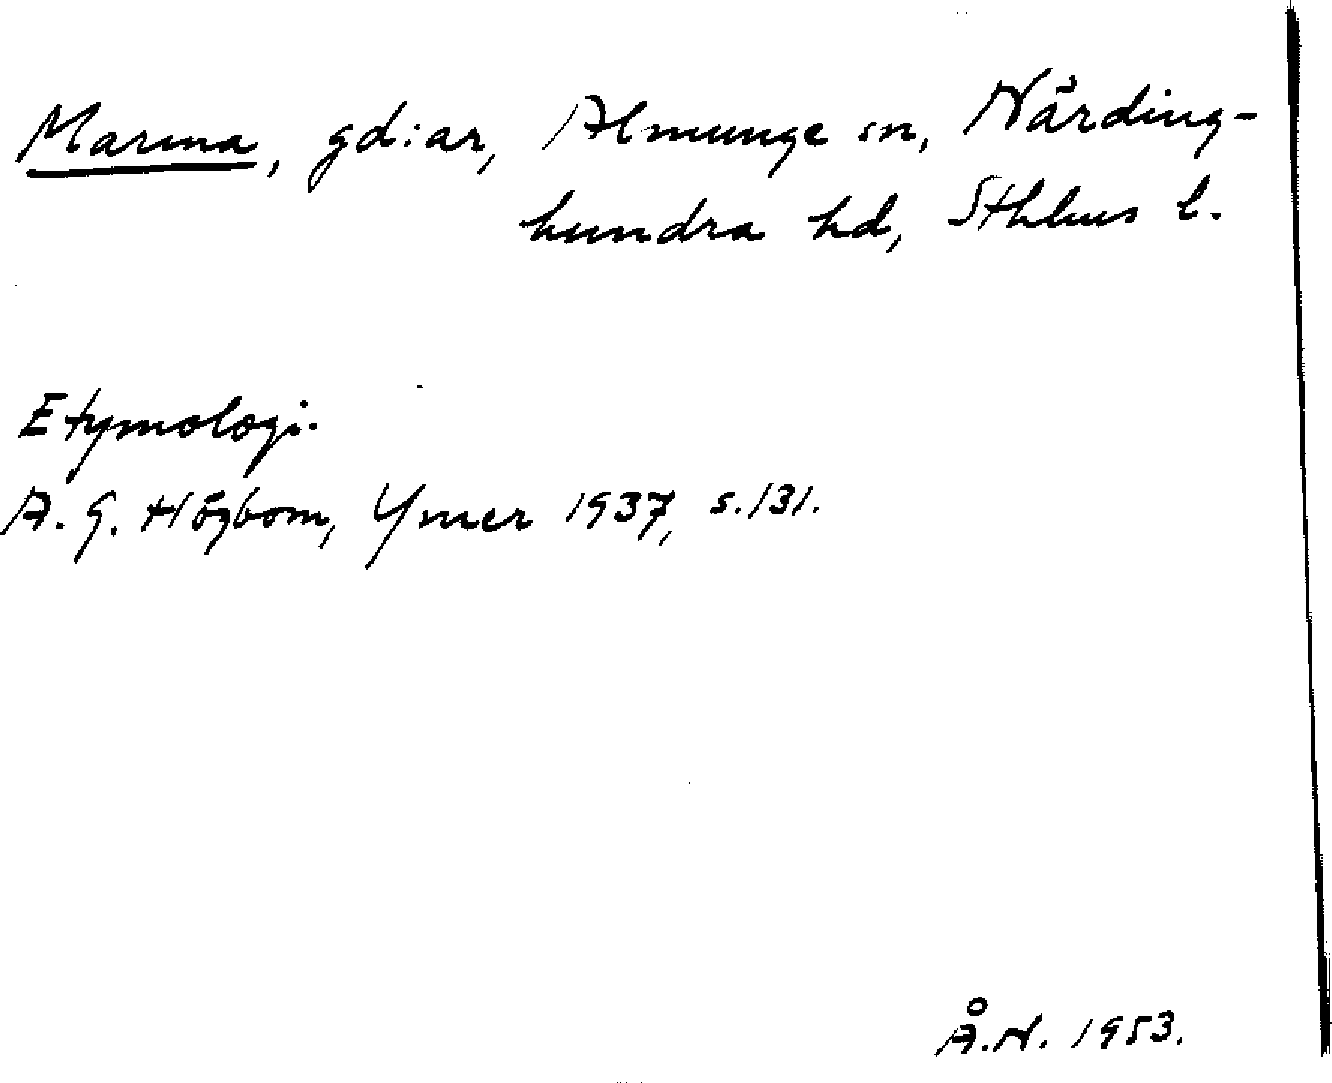 Marma, gd:ar, Almunge sn, Närding-
hundra hd, Sthlms l.
Etymologi.
A. G. Högbom, Ymer 1937, s. 131.
Å.N. 1953.